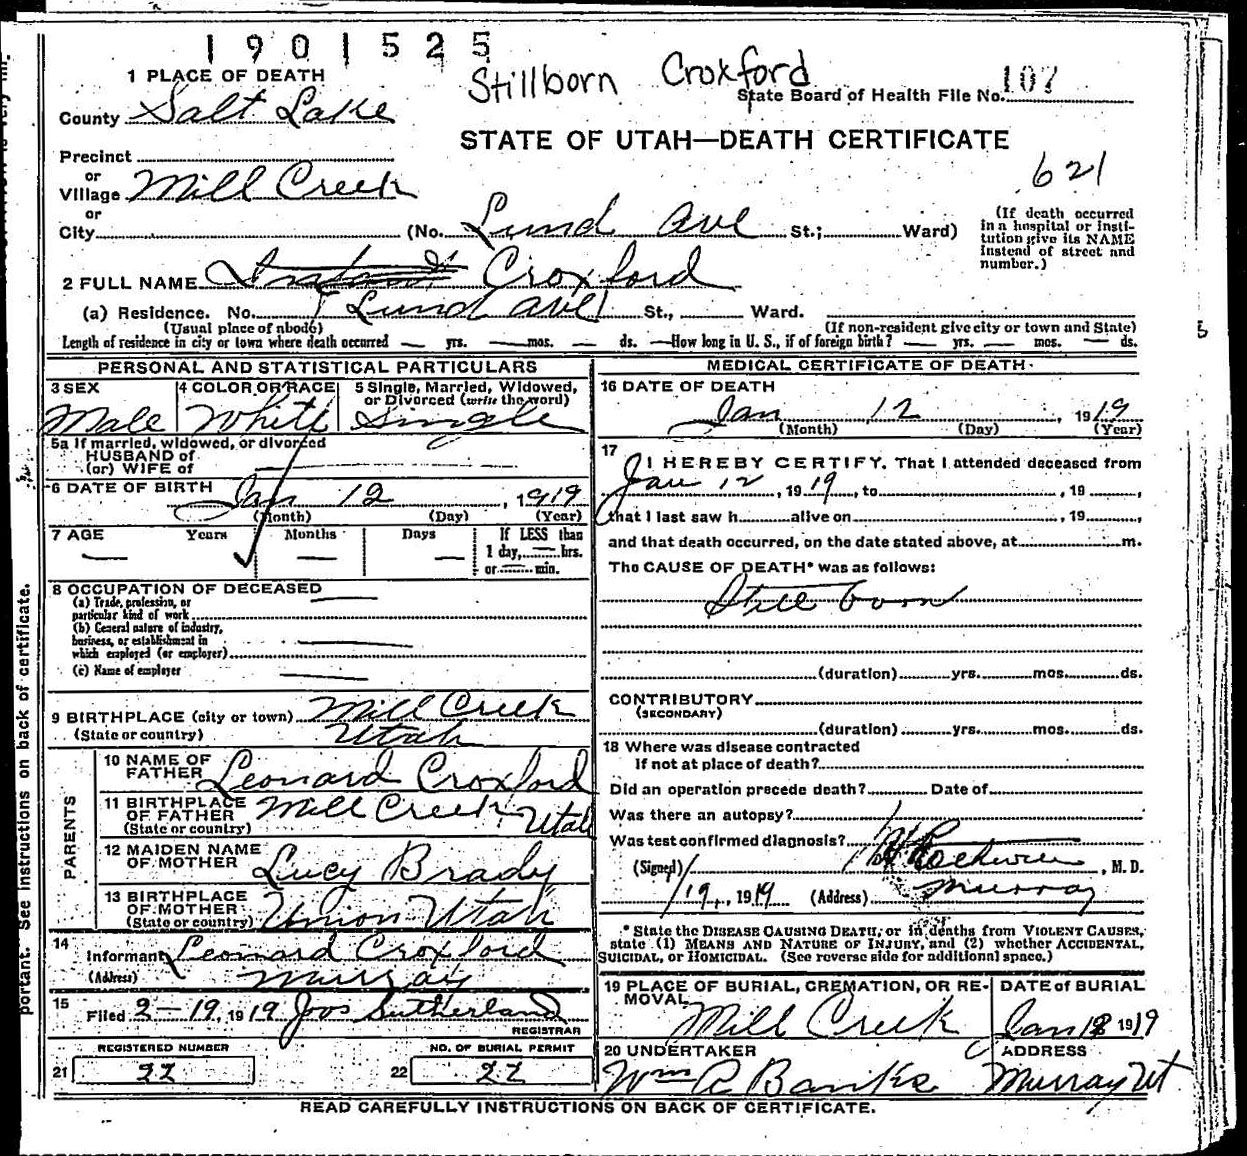 1901525
Stillborn Croxford
1 PLACE OF DEATH
State Board of Health File No. 107
County Salt Lake
STATE OF UTAH—DEATH CERTIFICATE
Precinct
621
or
Village Mill Creek
or
City (No. Lund Ave St.; Ward)
(If death occurred in a hospital or institution give its NAME instead of street and number.)
2 FULL NAME Croxford
(a) Residence. No. Lund Ave St., Ward.
(Usual place of abode) (If non-resident give city or town and State)
Length of residence in city or town where death occurred — yrs. — mos. — ds. — How long in U. S., if of foreign birth? — yrs. — mos. — ds.
PERSONAL AND STATISTICAL PARTICULARS
3 SEX 4 COLOR OR RACE 5 Single, Married, Widowed,
or Divorced (write the word)
Male White Single
5a If married, widowed, or divorced
HUSBAND of
(or) WIFE of
6 DATE OF BIRTH Jan 12, 1919
(Month) (Day) (Year)
7 AGE Years Months Days If LESS than
1 day, — hrs.
or — min.
8 OCCUPATION OF DECEASED
(a) Trade, profession, or
particular kind of work
(b) General nature of industry,
business, or establishment in
which employed (or employer)
(c) Name of employer
9 BIRTHPLACE (city or town) Mill Creek
(State or country) Utah
PARENTS
10 NAME OF
FATHER Leonard Croxford
11 BIRTHPLACE
OF FATHER Mill Creek Utah
(State or country)
12 MAIDEN NAME
OF MOTHER Lucy Brady
13 BIRTHPLACE
OF MOTHER Union Utah
(State or country)
14
Informant Leonard Croxford
(Address) Murray
15
Filed 2-19, 1919 Jos Sutherland
REGISTRAR
REGISTERED NUMBER NO. OF BURIAL PERMIT
21 22 22 22
MEDICAL CERTIFICATE OF DEATH
16 DATE OF DEATH
Jan 12, 1919
(Month) (Day) (Year)
17
I HEREBY CERTIFY, That I attended deceased from
Jan 12, 1919, to , 19 ,
that I last saw h alive on , 19 ,
and that death occurred, on the date stated above, at m.
The CAUSE OF DEATH* was as follows:
Still born
(duration) yrs. mos. ds.
CONTRIBUTORY
(SECONDARY)
(duration) yrs. mos. ds.
18 Where was disease contracted
If not at place of death?
Did an operation precede death? Date of
Was there an autopsy?
Was test confirmed diagnosis?
(Signed) , M. D.
1/19, 1919 (Address) Murray
* State the DISEASE CAUSING DEATH, or in deaths from VIOLENT CAUSES,
state (1) MEANS AND NATURE OF INJURY, and (2) whether ACCIDENTAL,
SUICIDAL, or HOMICIDAL. (See reverse side for additional space.)
19 PLACE OF BURIAL, CREMATION, OR RE- DATE of BURIAL
MOVAL
Mill Creek Jan 1919
20 UNDERTAKER ADDRESS
Wm A Banks Murray Ut
READ CAREFULLY INSTRUCTIONS ON BACK OF CERTIFICATE.
portant. See instructions on back of certificate.